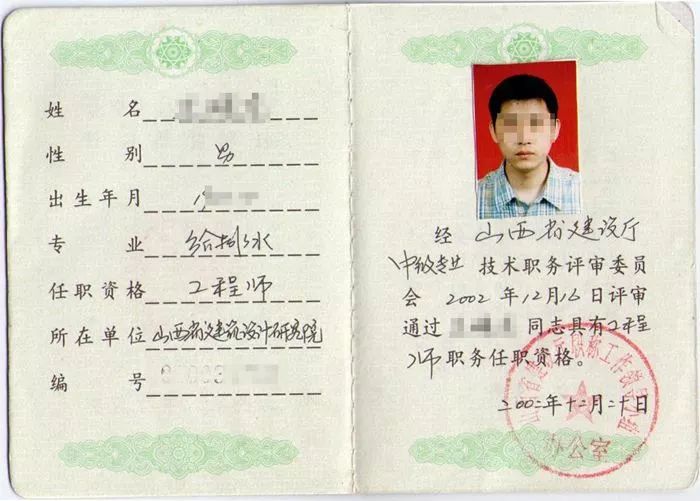 姓名
性别 男
出生年月 1
专业 给排水
任职资格 工程师
所在单位 山西省建筑设计研究院
编号
经 山西省建设厅
中级专业 技术职务评审委员
会 2002 年 12 月 16 日评审
通过 同志具有 工程
师 职务任职资格。
二00二年十二月二十日
办公室